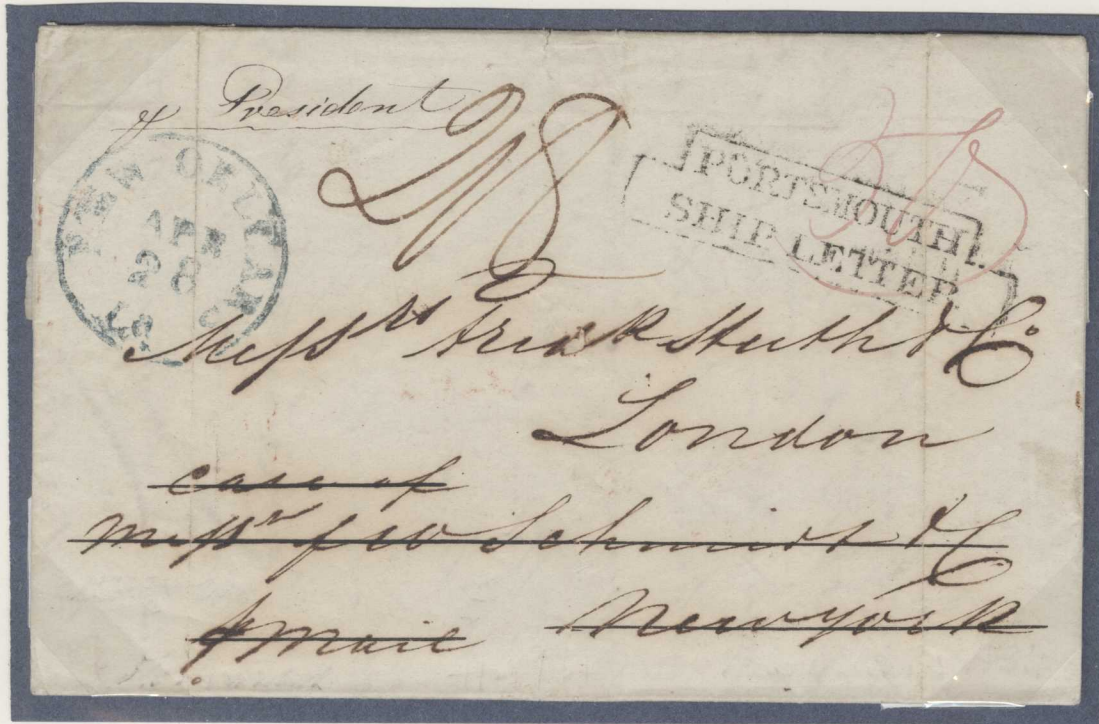 p President
2/8
NEW ORLEANS
APR
28
LA
PORTSMOUTH
SHIP LETTER
Messrs Fredk Huth & Co
London
care of
Messrs J W Schmidt & C
p Mail New York